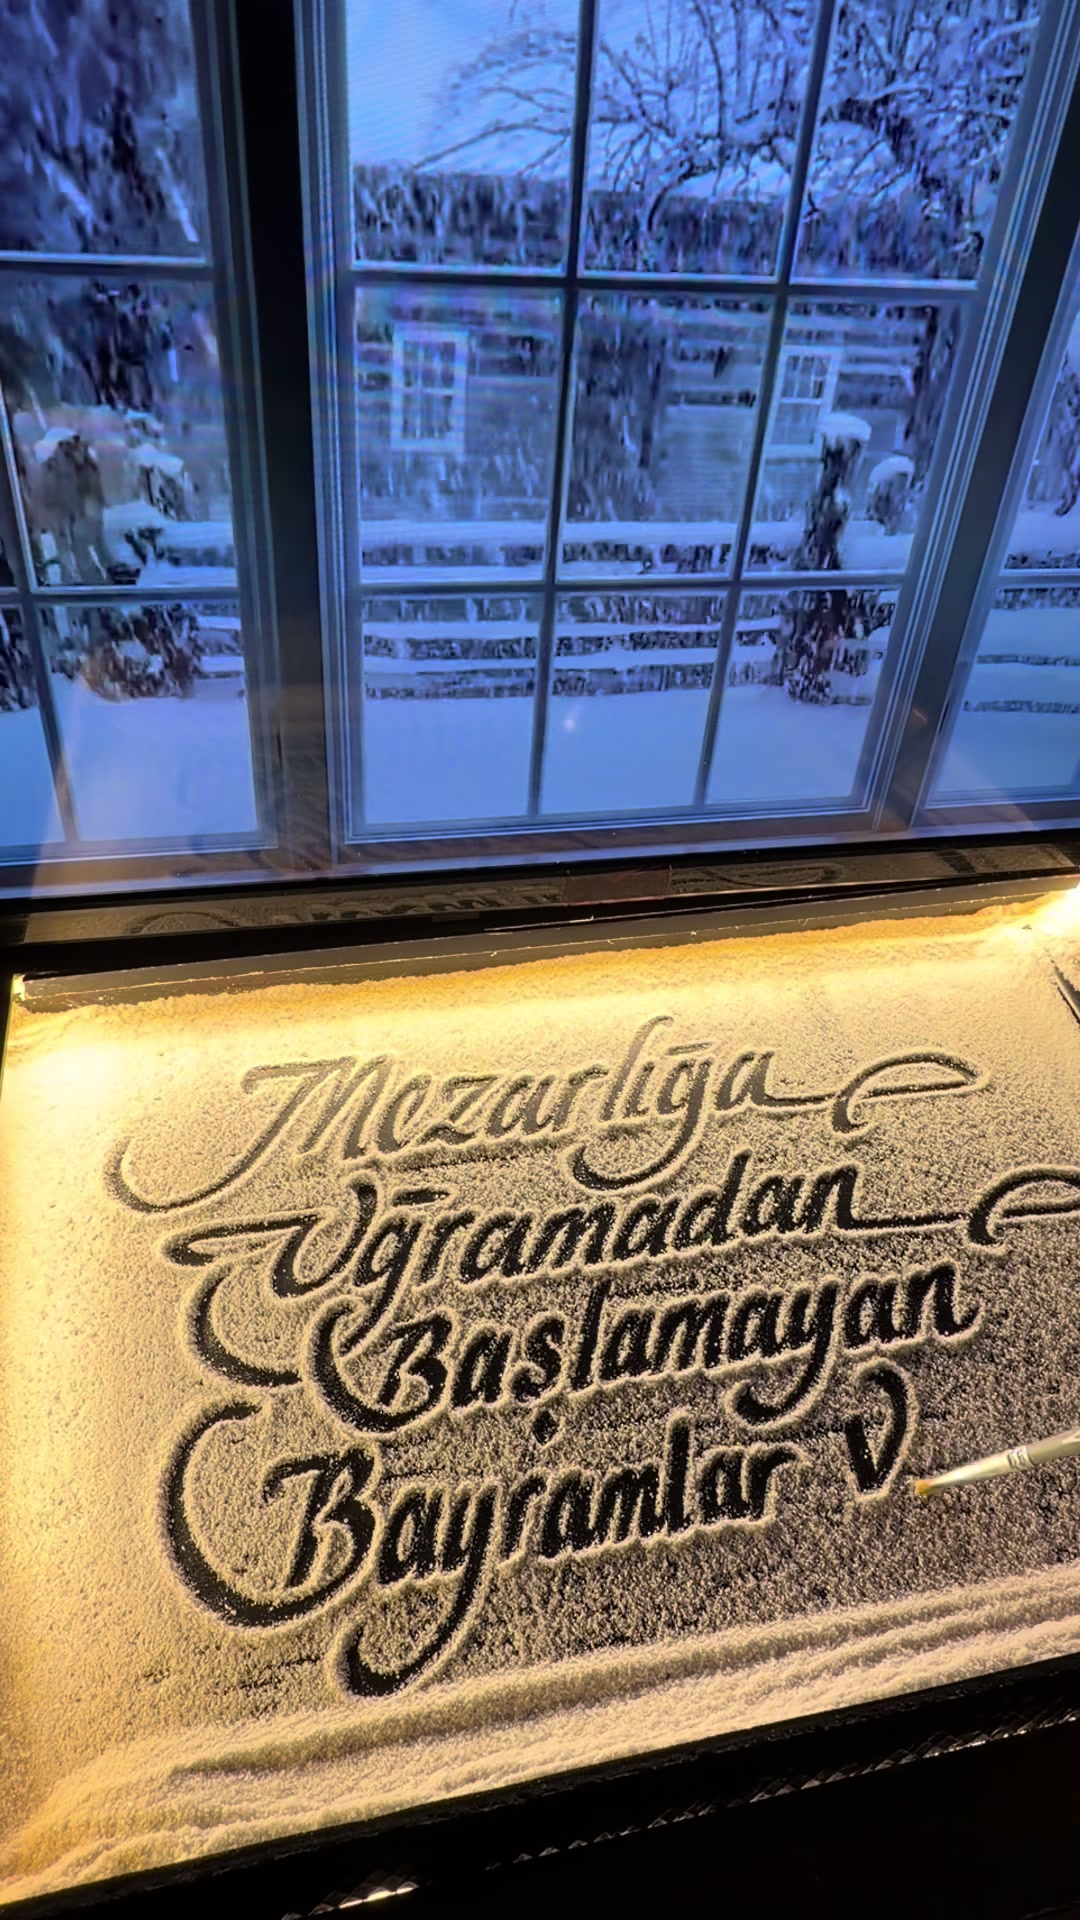 Mezarlığa
Uğramadan
Başlamayan
Bayramlar V